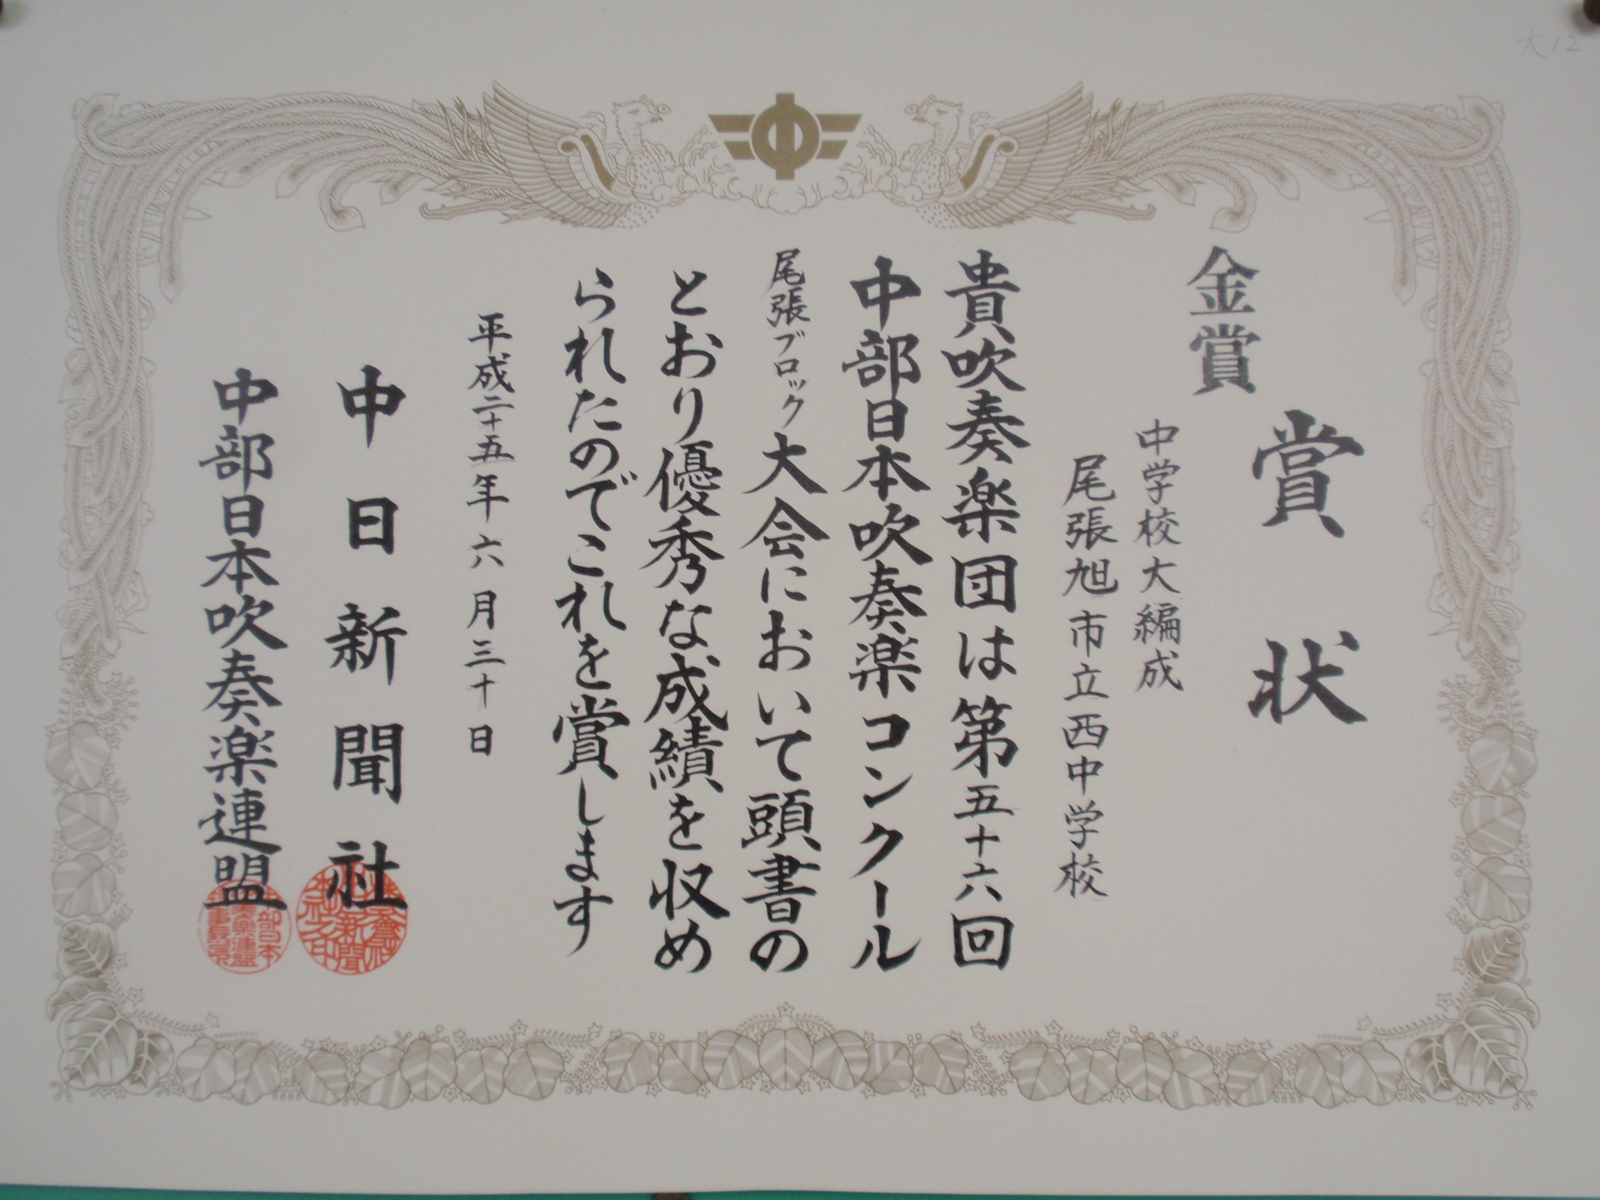 大12
金賞
賞状
中学校大編成
尾張旭市立西中学校
貴吹奏楽団は第五十六回
中部日本吹奏楽コンクール
尾張ブロック大会において頭書の
とおり優秀な成績を収め
られたのでこれを賞します
平成二十五年六月三十日
中日新聞社
中部日本吹奏楽連盟